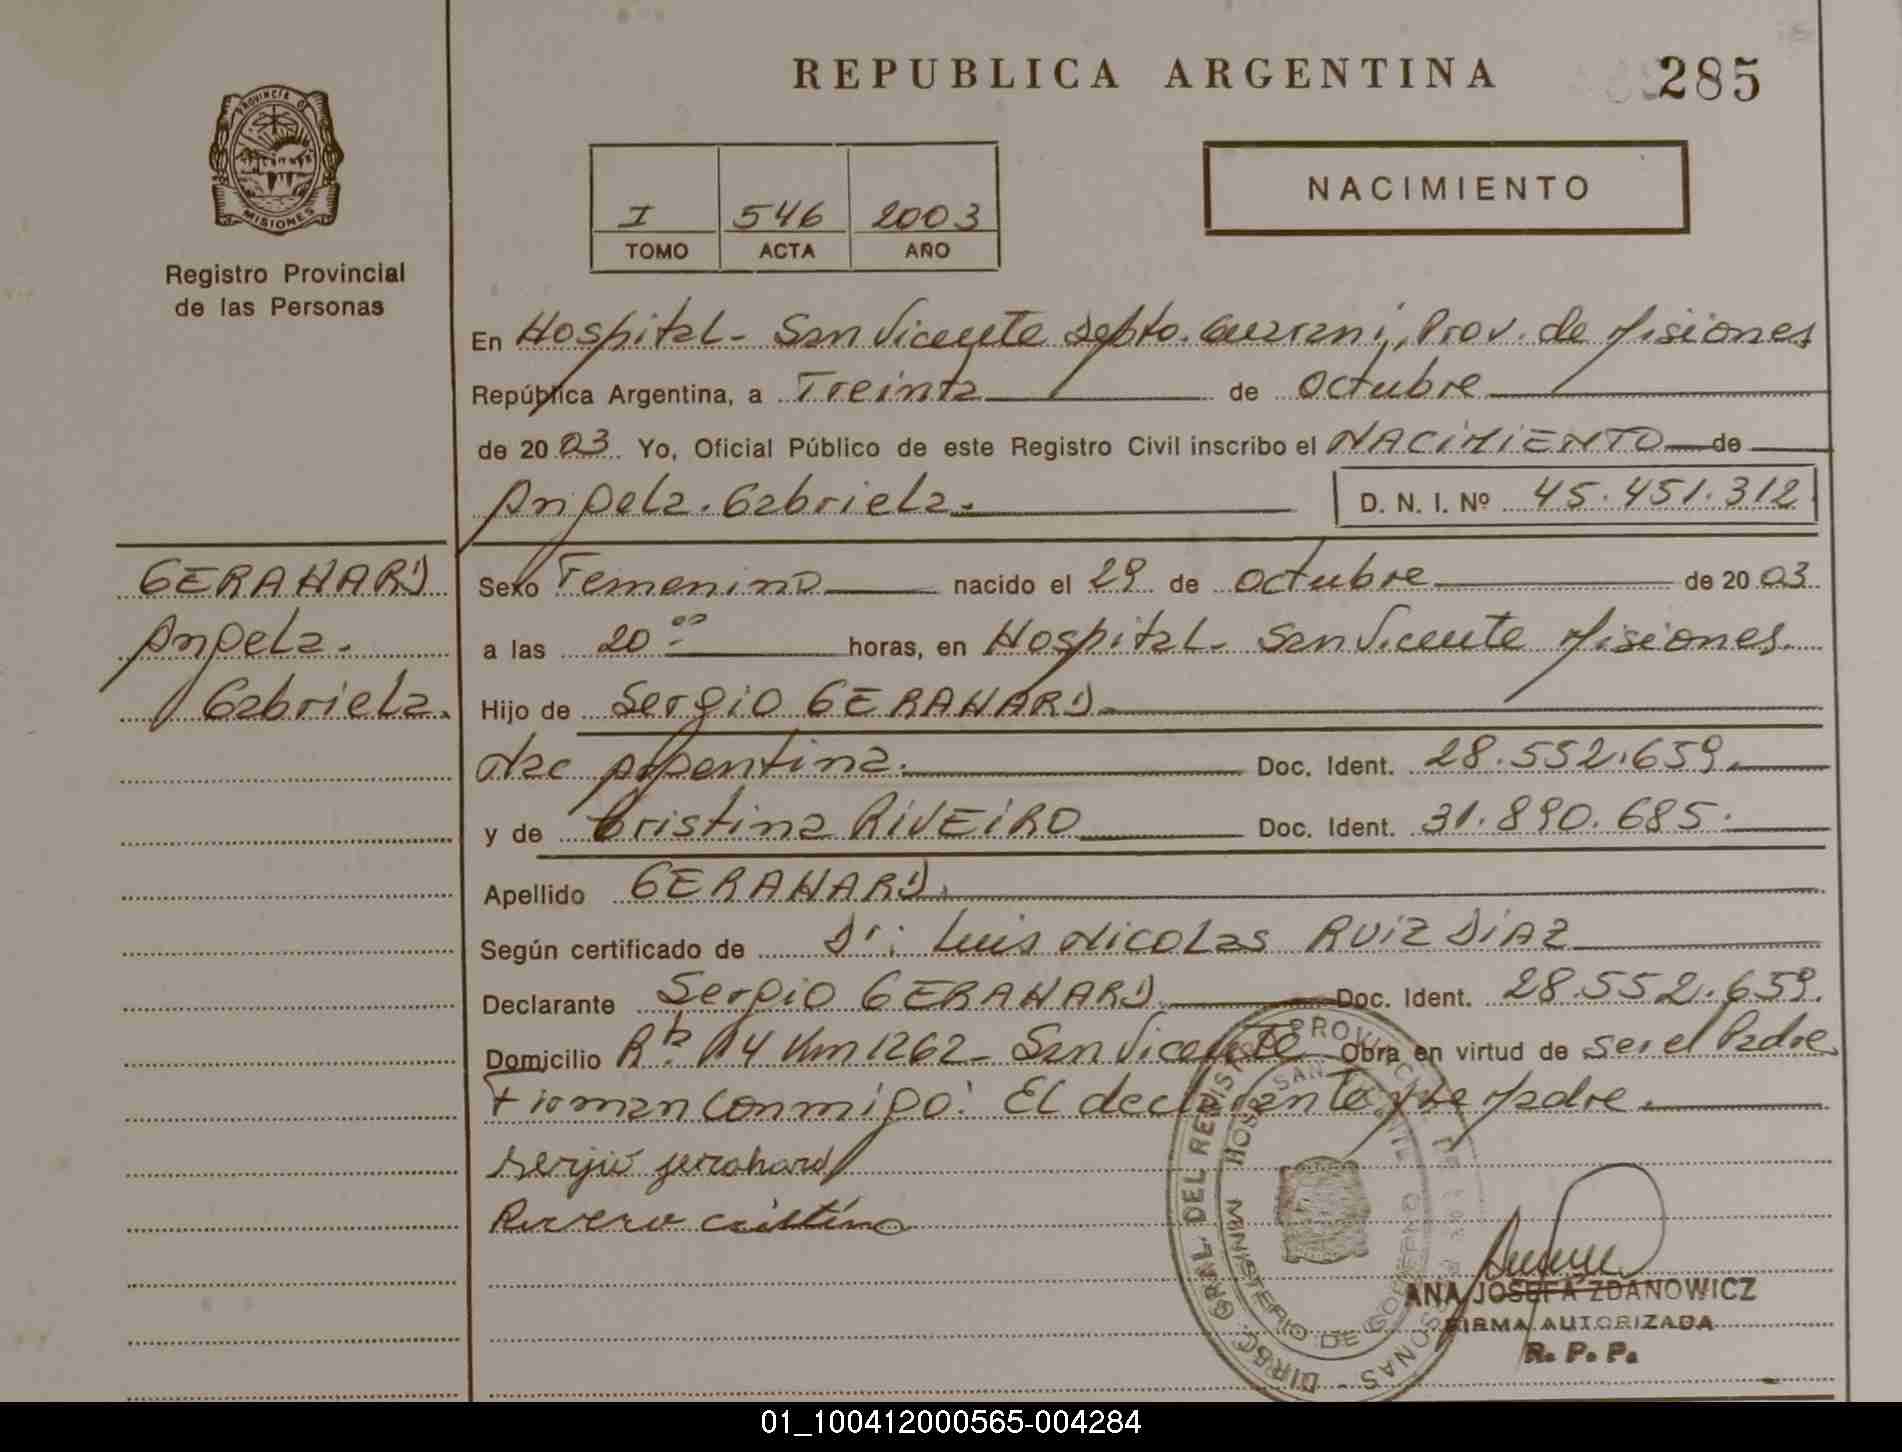 REPUBLICA ARGENTINA
285
PROVINCIA DE
MISIONES
Registro Provincial
de las Personas
I 546 2003
TOMO ACTA AÑO
NACIMIENTO
En Hospital - San Vicente Depto. Guarani, Prov. de Misiones
República Argentina, a Treinta de Octubre
de 2003 Yo, Oficial Público de este Registro Civil inscribo el NACIMIENTO de
Angela Gabriela. D. N. I. Nº 45.451.312
GERAHARD
Angela.
Gabriela.
Sexo Femenino nacido el 29 de Octubre de 2003
a las 20:00 horas, en Hospital - San Vicente Misiones.
Hijo de Sergio GERAHARD
Nac Argentina. Doc. Ident. 28.552.659.
y de Cristina RIVEIRO Doc. Ident. 31.890.685.
Apellido GERAHARD.
Según certificado de Dr: Luis Nicolas RUIZ DIAZ
Declarante Sergio GERAHARD Doc. Ident. 28.552.659.
Domicilio 14 Km 1262 - San Vicente Obra en virtud de ser el Padre
Firman conmigo: El declarante y la Madre.
Sergio Gerahard
cristina
DIREC. GRAL. DEL REGISTRO PROVINCIAL DE LAS PERSONAS
HOSP. SAN VICENTE
MINISTERIO DE GOBIERNO
ANA JOSEFA ZDANOWICZ
FIRMA AUTORIZADA
R. P. P.
01_100412000565-004284